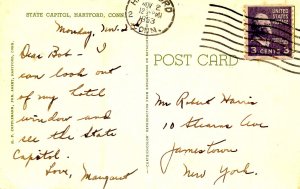 STATE CAPITOL, HARTFORD, CONN.
Monday, Nov. 2
Dear Bob - I
can look out
of my hotel
window and
see the State
Capitol.
Love, Margaret
NOV 2
1953
CONN.
UNITED STATES
POSTAGE
3 CENTS 3
POST CARD
Mr Robert Harris
10 Stearns Ave
Jamestown
New York.